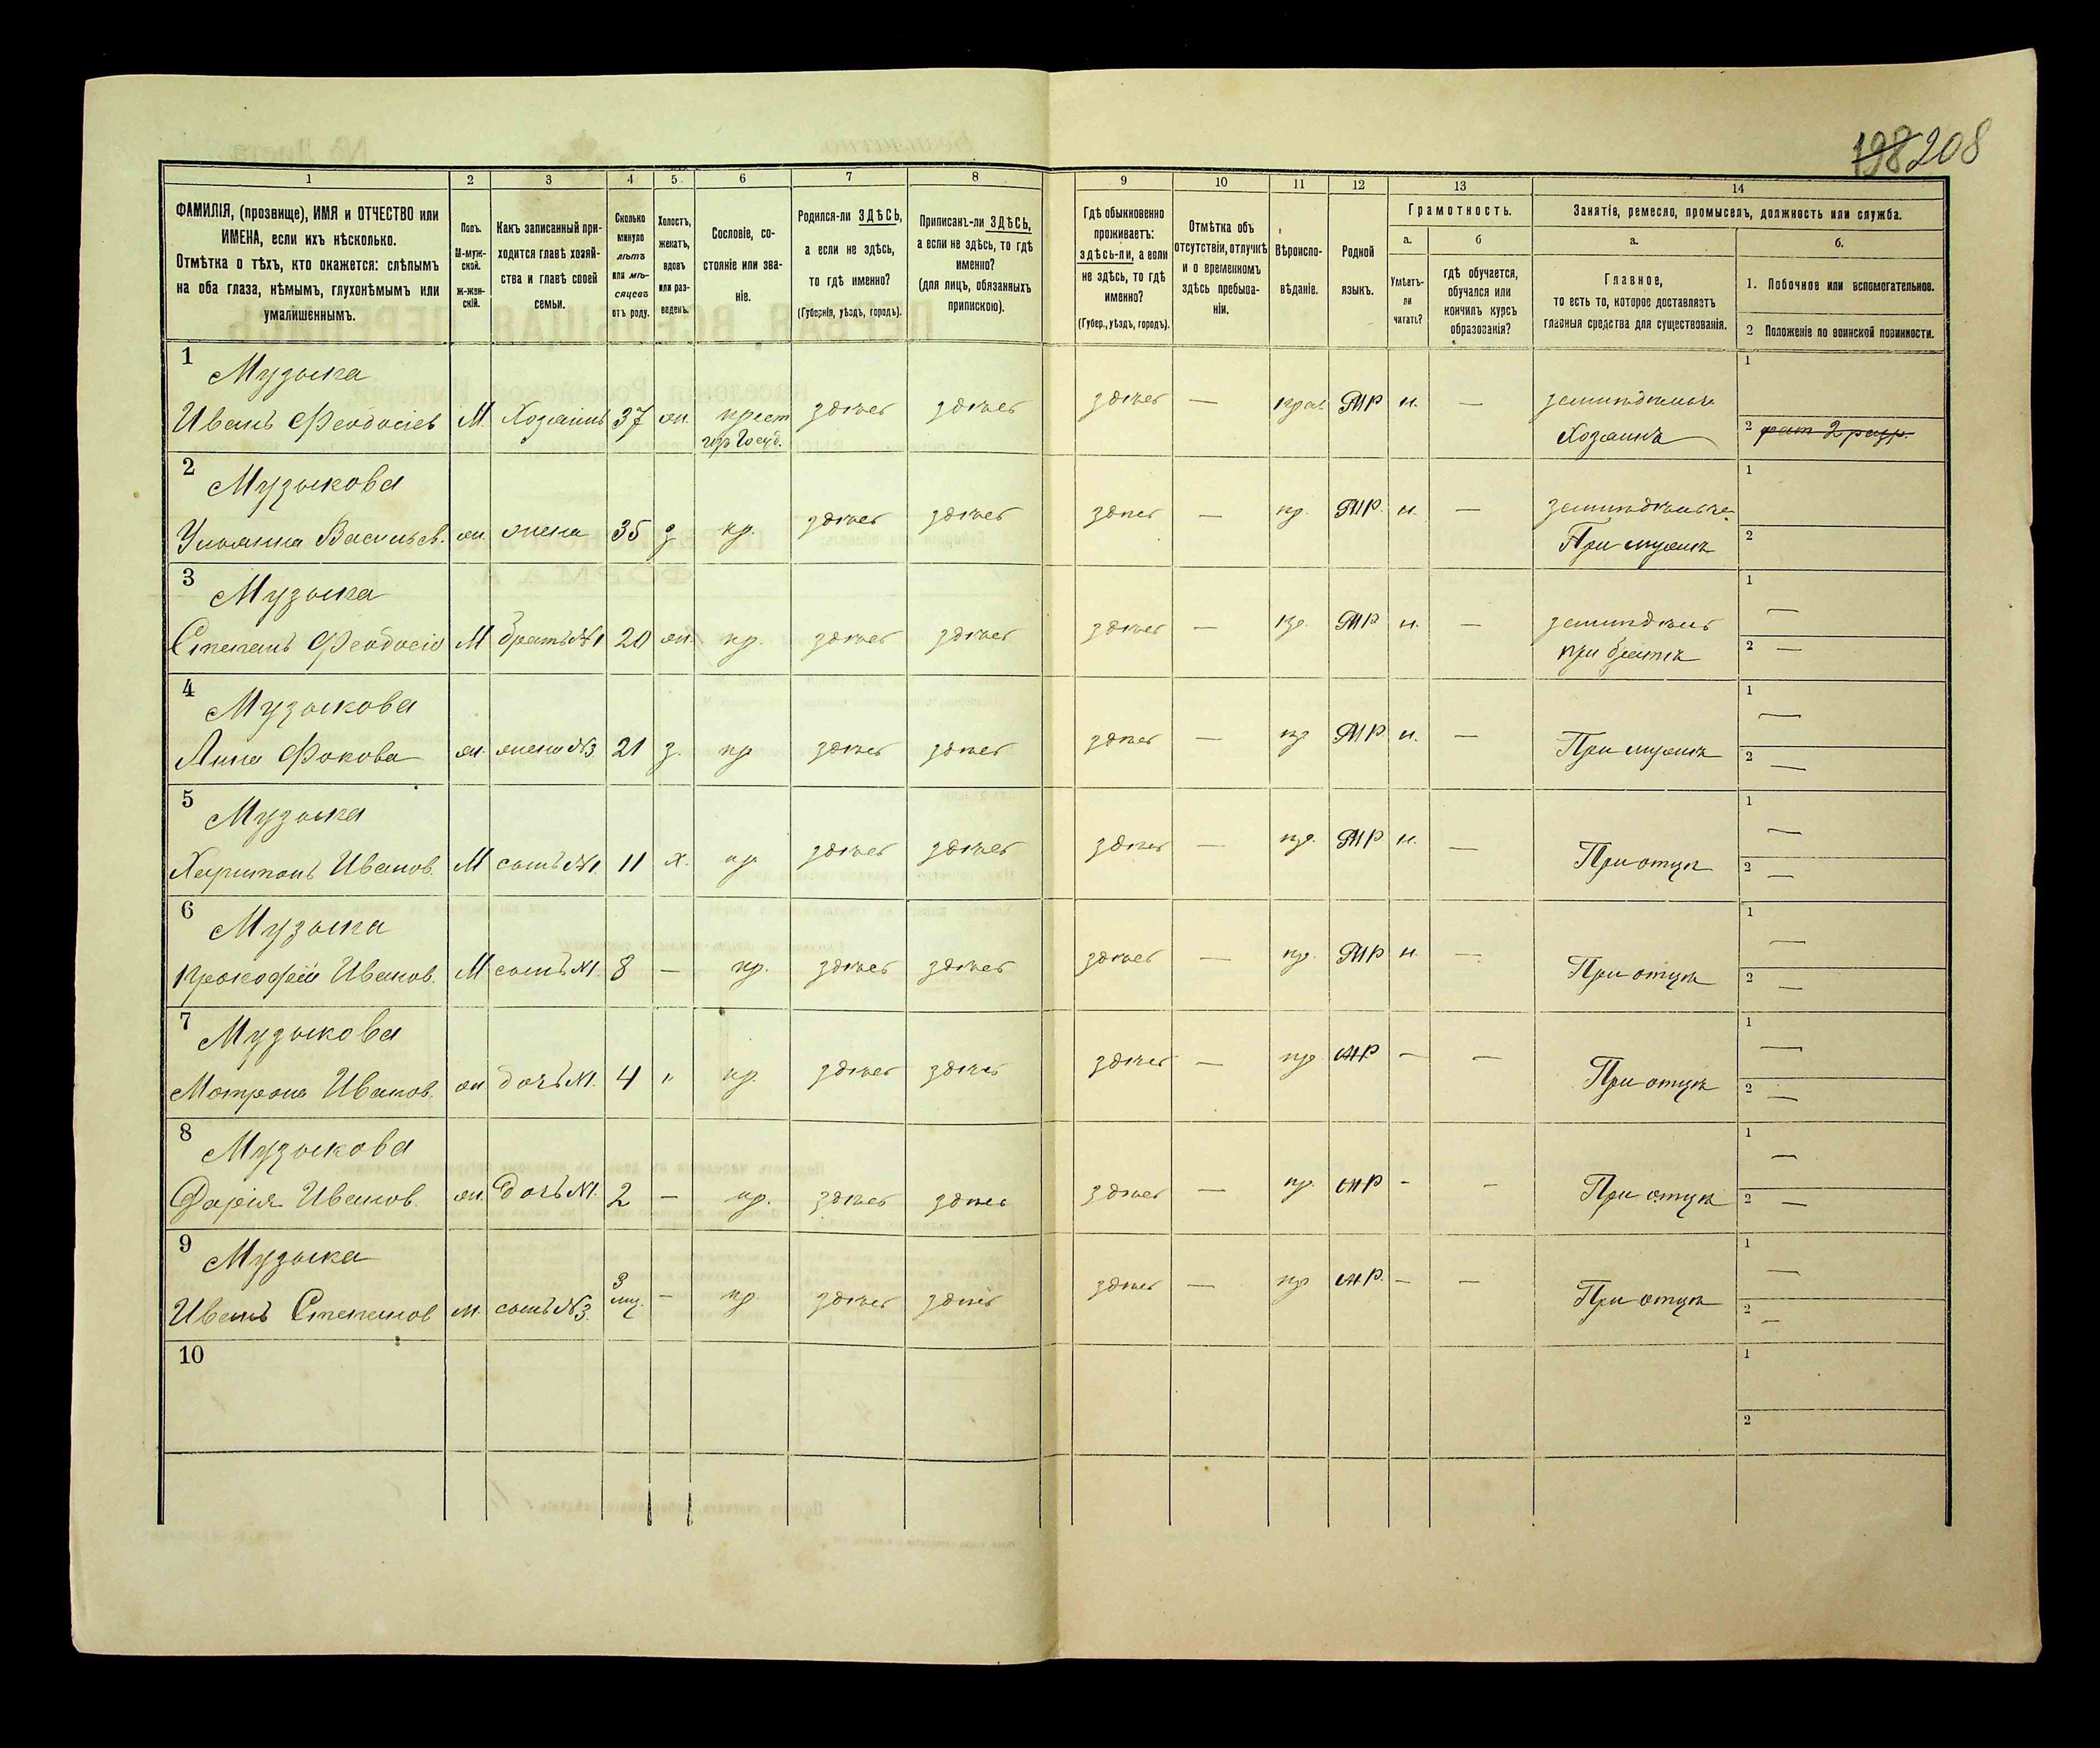 198 208
1 2 3 4 5 6 7 8 9 10 11 12 13 14
ФАМИЛІЯ, (прозвище), ИМЯ и ОТЧЕСТВО или
ИМЕНА, если ихъ нѣсколько.
Отмѣтка о тѣхъ, кто окажется: слѣпымъ
на оба глаза, нѣмымъ, глухонѣмымъ или
умалишеннымъ.
Полъ.
М-муж-
ской.
ж-жен-
скій.
Какъ записанный при-
ходится главѣ хозяй-
ства и главѣ своей
семьи.
Сколько
минуло
лѣтъ
или мѣ-
сяцевъ
отъ роду.
Холостъ,
женатъ,
вдовъ
или раз-
веденъ.
Сословіе, со-
стояніе или зва-
ніе.
Родился-ли ЗДѢСЬ,
а если не здѣсь,
то гдѣ именно?
(Губернія, уѣздъ, городъ).
Приписанъ-ли ЗДѢСЬ,
а если не здѣсь, то гдѣ
именно?
(для лицъ, обязанныхъ
припискою).
Гдѣ обыкновенно
проживаетъ:
здѣсь-ли, а если
не здѣсь, то гдѣ
именно?
(Губер., уѣздъ, городъ).
Отмѣтка объ
отсутствіи, отлучкѣ
и о временномъ
здѣсь пребыва-
ніи.
Вѣроиспо-
вѣданіе.
Родной
языкъ.
Грамотность.
а. б
Умѣетъ-
ли
читать?
гдѣ обучается,
обучался или
кончилъ курсъ
образованія?
Занятіе, ремесло, промыселъ, должность или служба.
а. б.
Главное,
то есть то, которое доставляетъ
главныя средства для существованія.
1. Побочное или вспомогательное.
2 Положеніе по воинской повинности.
1 Музыка 1
Иванъ Феодосіев М. Хозяинъ 37 жн. крест здѣсь здѣсь здѣсь — прав МР н. — земледѣльч
Хозяинъ 2 рат 2 разр.
2 Музыкова 1
Ульянна Васильев. жн. жена 35 з кр. здѣсь здѣсь здѣсь — пр. МР. н. — земледѣльче
При мужѣ 2
3 Музыка 1 —
Степанъ Феодосіо М братъ №1 20 жн. кр. здѣсь здѣсь здѣсь — пр. МР н. — земледѣль
при братѣ 2 —
4 Музыкова 1 —
Анна Фокова жн. жена №3 21 з. кр здѣсь здѣсь здѣсь — пр МР н. — При мужѣ 2 —
5 Музыка 1 —
Харитонъ Иванов. М сынъ №1. 11 х. кр здѣсь здѣсь здѣсь — пр. МР н. — При отцѣ 2 —
6 Музыка 1 —
Прокофій Иванов. М сынъ №1. 8 — кр. здѣсь здѣсь здѣсь — пр. МР н. — При отцѣ 2 —
7 Музыкова 1 —
Мотрона Иванов. жн дочь №1. 4 " кр. здѣсь здѣсь здѣсь — пр МР — — При отцѣ 2 —
8 Музыкова 1 —
Дарія Иванов. жн. дочь №1. 2 — кр. здѣсь здѣсь здѣсь — пр. МР - - При отцѣ 2 —
9 Музыка 1 —
Иванъ Степанов м. сынъ №3. 3 мц. — кр здѣсь здѣсь здѣсь — пр МР. — — При отцѣ 2 —
10 1
2